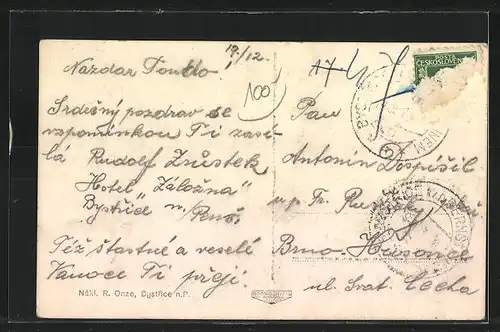 19./12.
Nazdar Toudo!
100
Srdečný pozdrav se
vzpomínkou Ti zasí-
lá Rudolf
Hotel "Záložna"
Bystřice n. Pernš.
Též šťastné a veselé
Vánoce Ti přeji.
Nákl. R. Onze, Bystřice n.P.
POŠTA
ČESKOSLOVEN
Pan
Antonín Dospíšil
u p. Fr.
Brno-Husovice
ul. Svat. Čecha